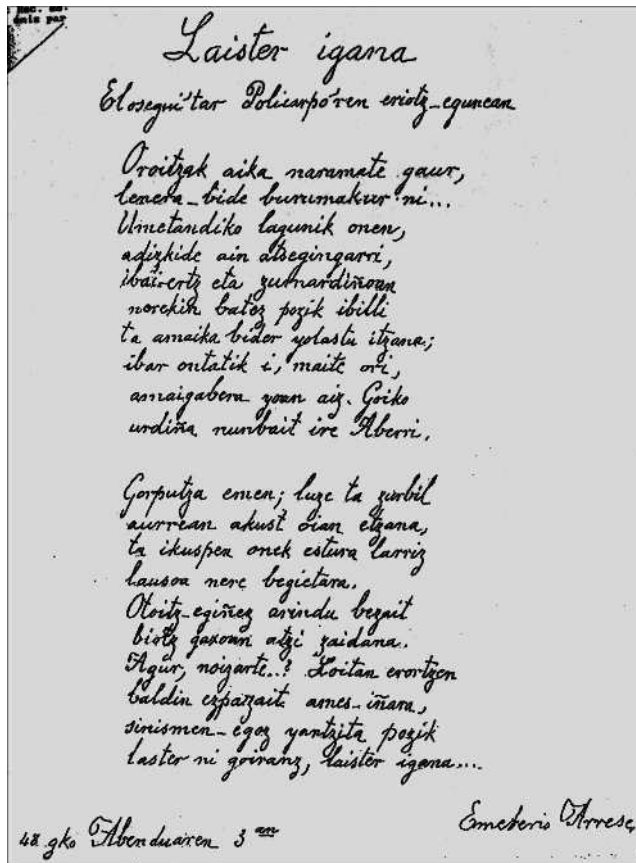 Laister igana
Elosegui'tar Policarpo'ren eriotz-egunean
Oroitzak aika naramate gaur,
lenera-bide burumakur ni...
Umetandiko lagunik onen,
adizkide ain atsegingarri,
ibai-ertz eta zumardiñoan
norekin batez pozik ibilli
ta amaika bider yolastu itzana;
ibar ontatik i, maite ori,
amaigabera yoan aiz. Goiko
urdiña nunbait ire Aberri.
Gorputza emen; luze ta zurbil
aurrean akust oian etzana,
ta ikuspen onek estura larriz
lausoa nere begietara.
Otoitz-egiñez arindu bezait
biotz gaxoan atzi zaidana.
Agur, noizarte..? Loitan erortzen
baldin ezpazait ames-iñara,
sinismen-egoz yantzita pozik
laster ni goiranz, laister igana....
48 gko Abenduaren 3 an
Emeterio Arrese